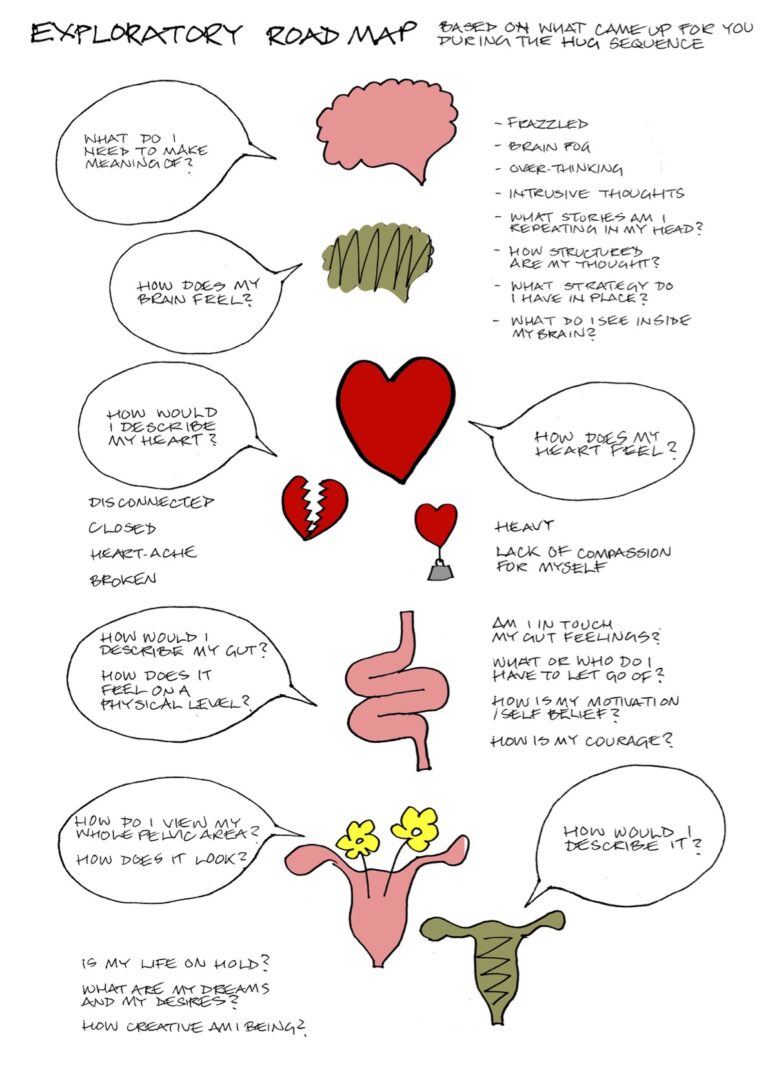 EXPLORATORY ROAD MAP
BASED ON WHAT CAME UP FOR YOU
DURING THE HUG SEQUENCE
WHAT DO I
NEED TO MAKE
MEANING OF?
- FRAZZLED
- BRAIN FOG
- OVER-THINKING
- INTRUSIVE THOUGHTS
- WHAT STORIES AM I
REPEATING IN MY HEAD?
- HOW STRUCTURED
ARE MY THOUGHT?
- WHAT STRATEGY DO
I HAVE IN PLACE?
- WHAT DO I SEE INSIDE
MY BRAIN?
HOW DOES MY
BRAIN FEEL?
HOW WOULD
I DESCRIBE
MY HEART?
HOW DOES MY
HEART FEEL?
DISCONNECTED
CLOSED
HEART-ACHE
BROKEN
HEAVY
LACK OF COMPASSION
FOR MYSELF
HOW WOULD I
DESCRIBE MY GUT?
HOW DOES IT
FEEL ON A
PHYSICAL LEVEL?
AM I IN TOUCH
MY GUT FEELINGS?
WHAT OR WHO DO I
HAVE TO LET GO OF?
HOW IS MY MOTIVATION
/SELF BELIEF?
HOW IS MY COURAGE?
HOW DO I VIEW MY
WHOLE PELVIC AREA?
HOW DOES IT LOOK?
HOW WOULD I
DESCRIBE IT?
IS MY LIFE ON HOLD?
WHAT ARE MY DREAMS
AND MY DESIRES?
HOW CREATIVE AM I BEING?